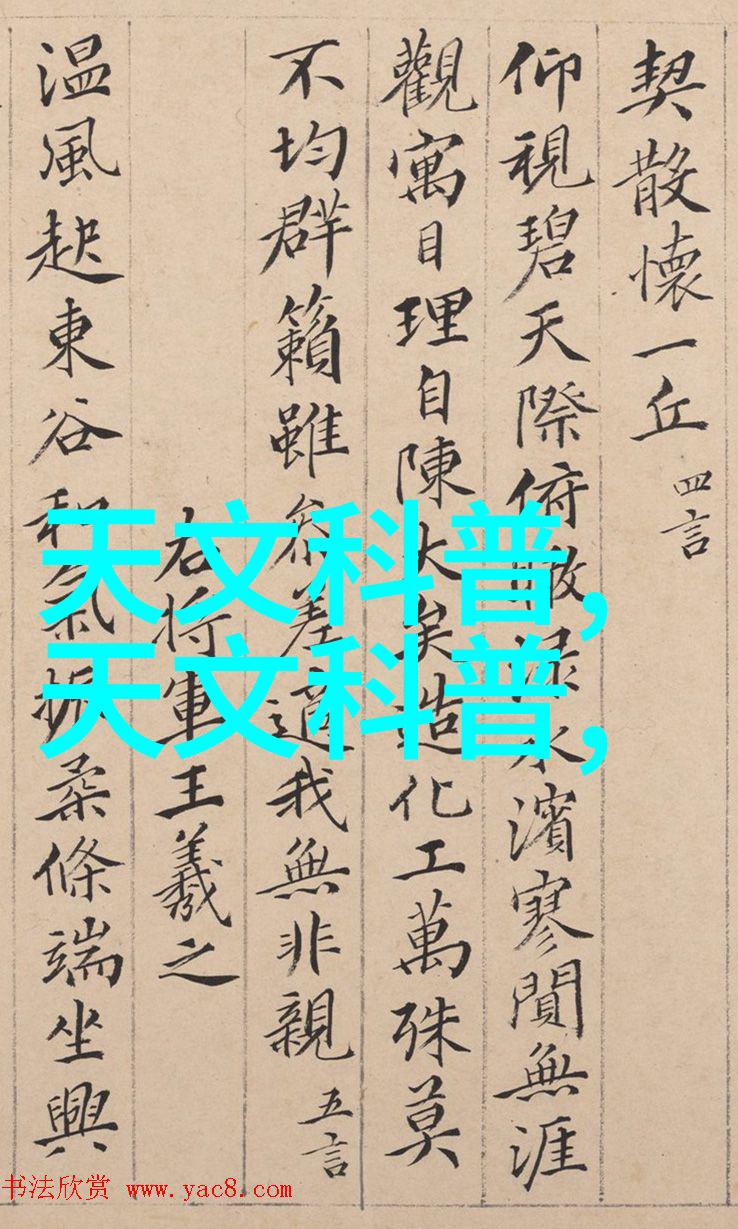 契散懷一丘 四言
仰視碧天際俯瞰渌水濱寥閴無涯
觀寓目理自陳大矣造化工萬殊莫
不均群籟雖參差適我無非親 五言
右將軍王羲之
温風起東谷和氣振柔條端坐興
天文科普,
天文科普,
书法欣赏 www.yac8.com